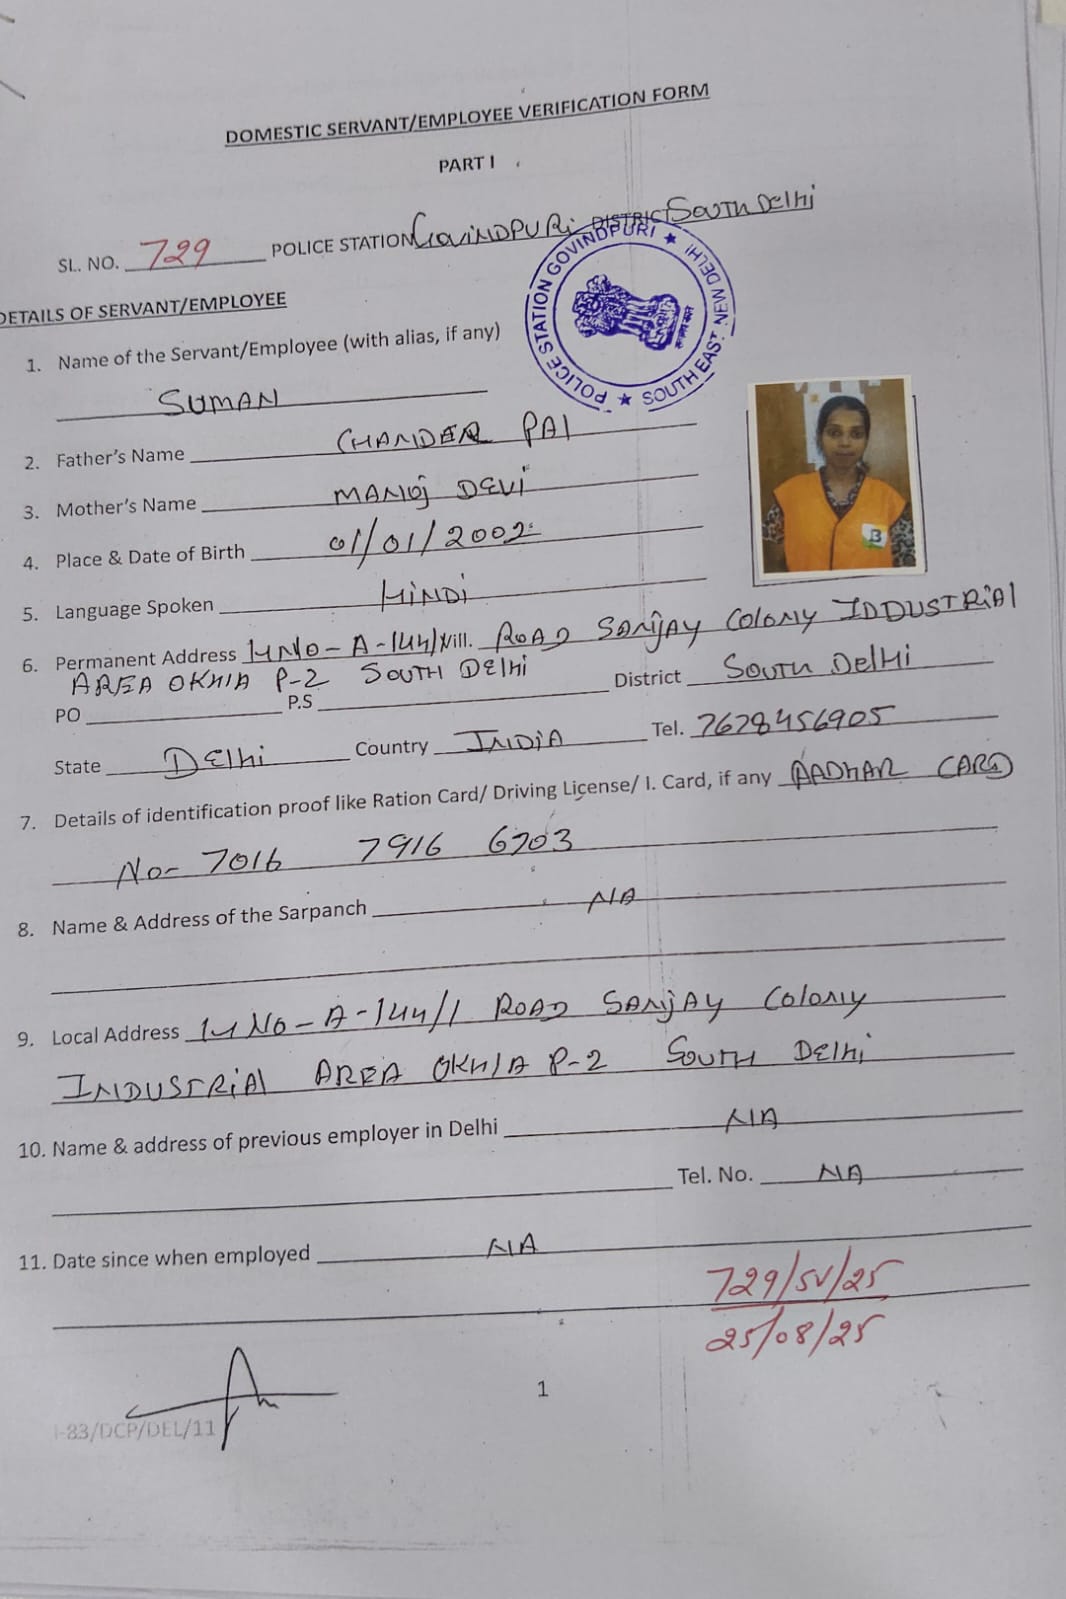 DOMESTIC SERVANT/EMPLOYEE VERIFICATION FORM
PART I
SL. NO. 729 POLICE STATION GOVINDPURI DISTRICT SOUTH DElHi
POLICE STATION GOVINDPURI ★ SOUTH EAST NEW DELHI ★
DETAILS OF SERVANT/EMPLOYEE
1. Name of the Servant/Employee (with alias, if any)
SUMAN
2. Father's Name CHANDER PAl
3. Mother's Name MANOj DEVi
4. Place & Date of Birth 01/01/2002
5. Language Spoken HiNDi
6. Permanent Address HNO-A-144/ Vill. ROAD SANjAY COlONY IDDUSTRiAl
AREA OKHlA P-2 SOUTH DElHi
PO P.S District SOUTH DElHi
State DElHi Country INDiA Tel. 7678456905
7. Details of identification proof like Ration Card/ Driving License/ I. Card, if any AADHAR CARD
No- 7016 7916 6703
8. Name & Address of the Sarpanch NA
9. Local Address HNO-A-144/1 ROAD SANjAY COlONY
INDUSTRiAl AREA OKHlA P-2 SOUTH DElHi
10. Name & address of previous employer in Delhi NA
Tel. No. NA
11. Date since when employed NA
729/SV/25
25/08/25
1
-83/DCP/DEL/11